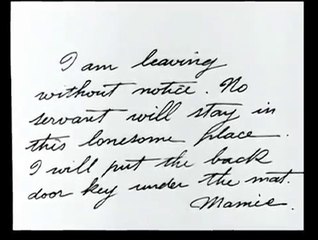 I am leaving
without notice. No
servant will stay in
this lonesome place.
I will put the back
door key under the mat.
Mamie.